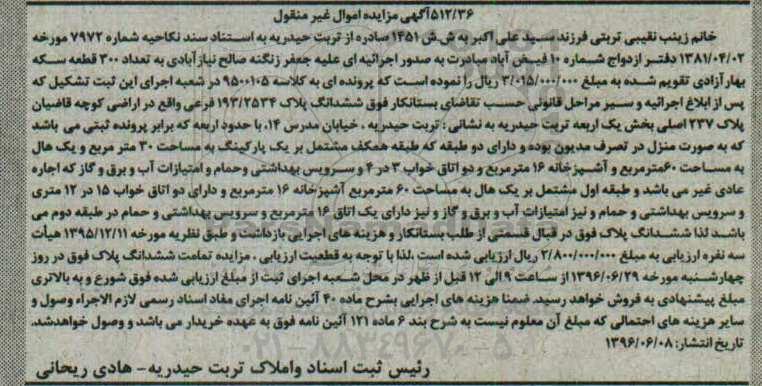 ۵۱۲/۳۶آگهی مزایده اموال غیر منقول
خانم زینب نقیبی تربتی فرزند سید علی اکبر به ش.ش ۱۴۵۱ صادره از تربت حیدریه به استناد سند نکاحیه شماره ۷۹۷۲ مورخه
۱۳۸۱/۰۴/۰۲ دفتر ازدواج شماره ۱۰ فیض آباد مبادرت به صدور اجرائیه ای علیه جعفر زنگنه صالح نیازآبادی به تعداد ۳۰۰ قطعه سکه
بهار آزادی تقویم شده به مبلغ ۳/۰۱۵/۰۰۰/۰۰۰ ریال را نموده است که پرونده ای به کلاسه ۹۵۰۰۱۰۵ در شعبه اجرای این ثبت تشکیل که
پس از ابلاغ اجرائیه و سیر مراحل قانونی حسب تقاضای بستانکار فوق ششدانگ پلاک ۱۹۳/۲۵۳۴ فرعی واقع در اراضی کوچه قاضیان
پلاک ۲۳۷ اصلی بخش یک اربعه تربت حیدریه به نشانی : تربت حیدریه ، خیابان مدرس ۱۴، با حدود اربعه که برابر پرونده ثبتی می باشد
که به صورت منزل در تصرف مدیون بوده و دارای دو طبقه که طبقه همکف مشتمل بر یک پارکینگ به مساحت ۳۰ متر مربع و یک هال
به مساحت ۶۰مترمربع و آشپزخانه ۱۶ مترمربع و دو اتاق خواب ۳ در ۴ و سرویس بهداشتی وحمام و امتیازات آب و برق و گاز که اجاره
عادی غیر می باشد و طبقه اول مشتمل بر یک هال به مساحت ۶۰ مترمربع آشپزخانه ۱۶ مترمربع و دارای دو اتاق خواب ۱۵ در ۱۲ متری
و سرویس بهداشتی و حمام و نیز امتیازات آب و برق و گاز و نیز دارای یک اتاق ۱۶ مترمربع و سرویس بهداشتی و حمام در طبقه دوم می
باشد لذا ششدانگ پلاک فوق در قبال قسمتی از طلب بستانکار و هزینه های اجرایی بازداشت و طبق نظریه مورخه ۱۳۹۵/۱۲/۱۱ هیأت
سه نفره ارزیابی به مبلغ ۲/۸۰۰/۰۰۰/۰۰۰ ریال ارزیابی شده است .لذا با توجه به قطعیت ارزیابی ، مزایده تمامت ششدانگ پلاک فوق در روز
چهارشنبه مورخه ۱۳۹۶/۰۶/۲۹ از ساعت ۹ الی ۱۲ قبل از ظهر در محل شعبه اجرای ثبت از مبلغ ارزیابی شده فوق شورع و به بالاتری
مبلغ پیشنهادی به فروش خواهد رسید. ضمنا هزینه های اجرایی بشرح ماده ۴۰ آئین نامه اجرای مفاد اسناد رسمی لازم الاجراء وصول و
سایر هزینه های احتمالی که مبلغ آن معلوم نیست به شرح بند ۶ ماده ۱۲۱ آئین نامه فوق به عهده خریدار می باشد و وصول خواهدشد.
تاریخ انتشار: ۱۳۹۶/۰۶/۰۸
رئیس ثبت اسناد واملاک تربت حیدریه- هادی ریحانی
۰۲۱-۸۸۳۴۹۶۷۰-۵